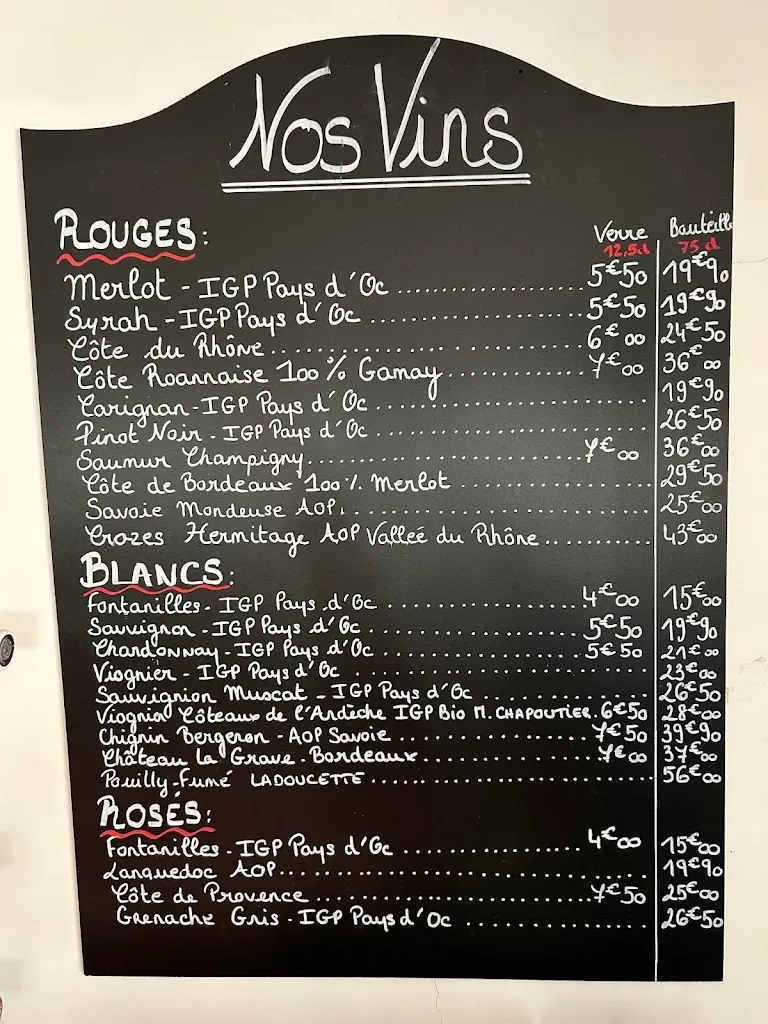 Nos Vins
ROUGES: Verre Bouteille
12,5cl 75 cl
Merlot - IGP Pays d'Oc 5€50 19€90
Syrah - IGP Pays d'Oc 5€50 19€90
Côte du Rhône 6€00 24€50
Côte Roannaise 100% Gamay 7€00 36€00
Carignan - IGP Pays d'Oc 19€90
Pinot Noir - IGP Pays d'Oc 26€50
Saumur Champigny 7€00 36€00
Côte de Bordeaux 100% Merlot 29€50
Savoie Mondeuse AOP 25€00
Crozes Hermitage AOP Valleé du Rhône 43€00
BLANCS:
Fontanilles - IGP Pays d'Oc 4€00 15€00
Sauvignon - IGP Pays d'Oc 5€50 19€90
Chardonnay - IGP Pays d'Oc 5€50 21€00
Viognier - IGP Pays d'Oc 23€00
Sauvignion Muscat - IGP Pays d'Oc 26€50
Viognier Côteaux de l'Ardèche IGP Bio M. CHAPOUTIER 6€50 28€00
Chignin Bergeron - AOP Savoie 7€50 39€90
Château La Grave - Bordeaux 7€00 37€00
Pouilly-Fumé LADOUCETTE 56€00
ROSÉS:
Fontanilles - IGP Pays d'Oc 4€00 15€00
Languedoc AOP 19€90
Côte de Provence 7€50 25€00
Grenache Gris - IGP Pays d'Oc 26€50